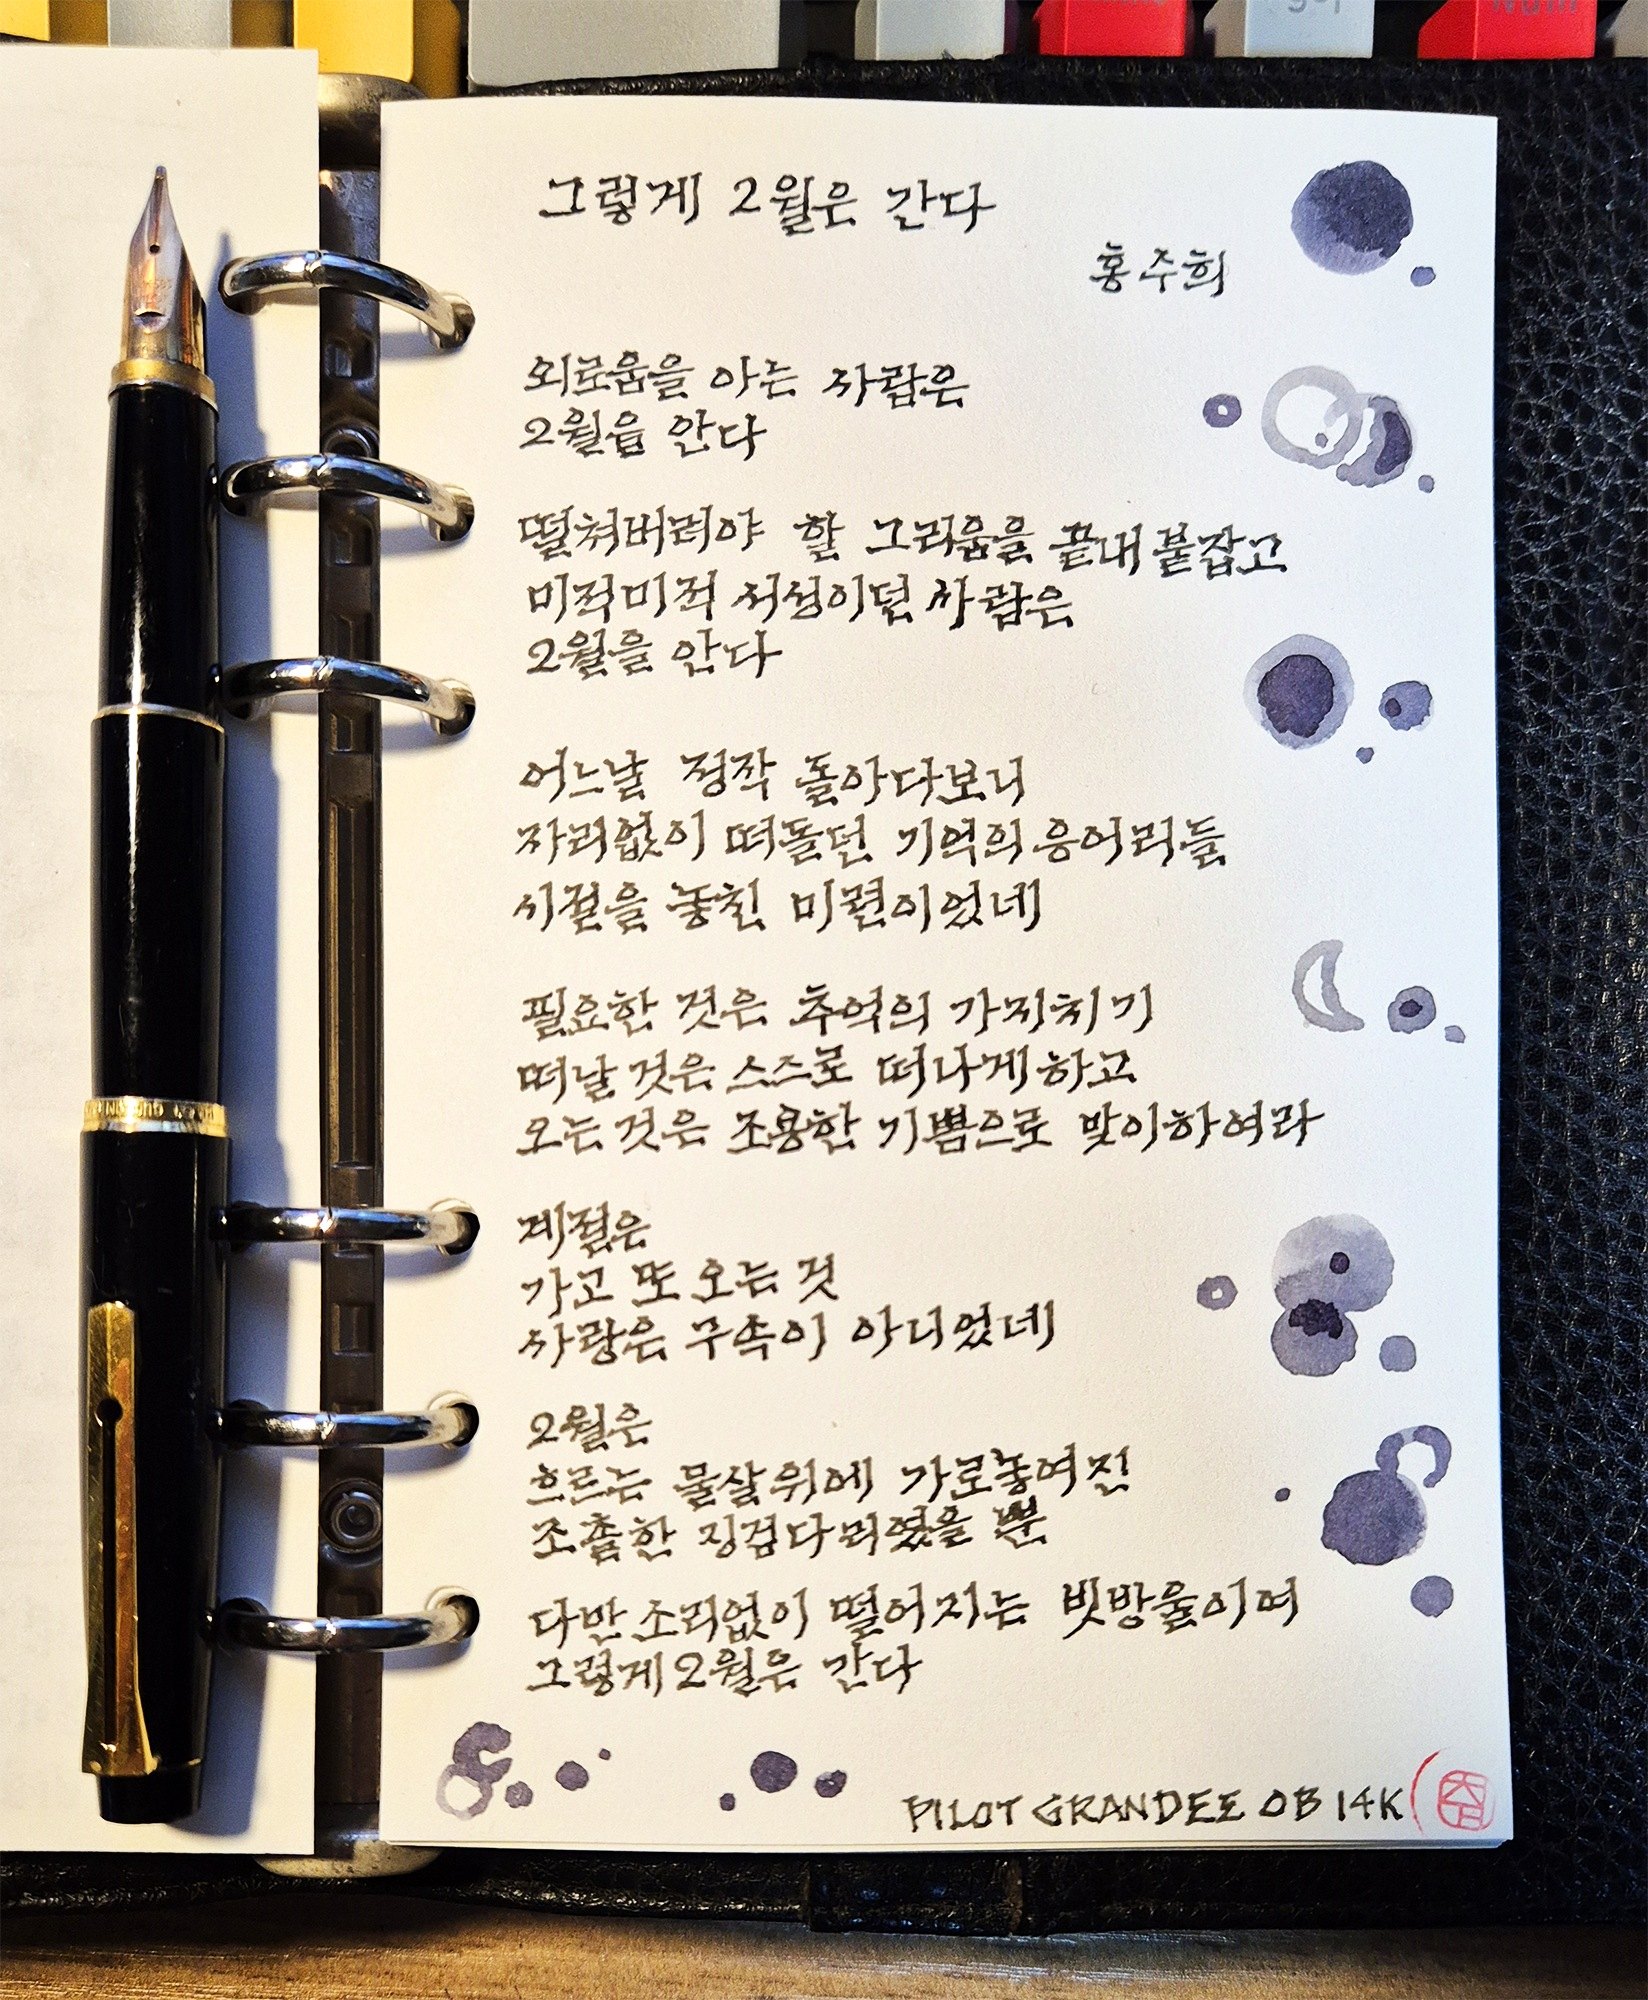 그렇게 2월은 간다
홍주희
외로움을 아는 사람은
2월을 안다
떨쳐버려야 할 그리움을 끝내 붙잡고
미적미적 서성이던 사람은
2월을 안다
어느날 정작 돌아다보니
자리없이 떠돌던 기억의 응어리들
시절을 놓친 미련이었네
필요한 것은 추억의 가지치기
떠날 것은 스스로 떠나게하고
오는 것은 조용한 기쁨으로 맞이하여라
계절은
가고 또 오는 것
사랑은 구속이 아니었네
2월은
흐르는 물살위에 가로놓여진
조촐한 징검다리였을 뿐
다만 소리없이 떨어지는 빗방울이여
그렇게 2월은 간다
PILOT GRANDEE OB 14K